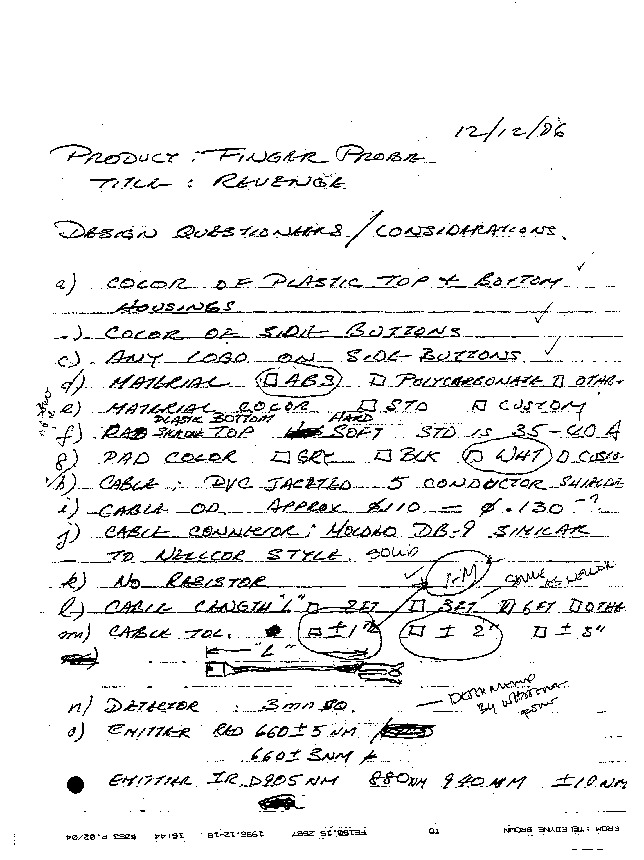 12/12/86
PRODUCT : FINGER PROBE
TITLE : REVENGE
DESIGN QUESTIONERS / CONSIDERATIONS.
a) COLOR OF PLASTIC TOP & BOTTOM ✓
HOUSINGS
-) COLOR OF SIDE BUTTONS ✓
c) ANY LOGO ON SIDE BUTTONS ✓
d) MATERIAL □ ABS □ POLYCARBONATE □ OTHER
e) MATERIAL COLOR □ STD □ CUSTOM
PLASTIC BOTTOM HARD
f) TOP SOFT STD IS 35-40 A
g) PAD COLOR □ GRY □ BLK □ WHT □ CUSTO
h) CABLE : PVC JACKETED 5 CONDUCTOR SHIELDE
i) CABLE OD. APPROX Ø110 = Ø.130 -?
j) CABLE CONNECTOR ; MOLDED DB-9 SIMILAR
TO NELLCOR STYLE. SOLID
k) NO RESISTOR ✓ 1-M SAME AS NELLCOR
l) CABLE LENGTH "L" □ 2FT □ 3FT □ 6FT □ OTHE
m) CABLE TOL. □ ±1" □ ± 2" □ ± 3"
"L"
n) DETECTOR : 3mm SQ.
BY
o) EMITTER RED 660±5 NM /
660±3NM
EMITTER IR. 905 NM 880NM 940NM ±10NM
FROM : TELEDYNE BROWN TO 1996.12-18 16:44 #263 P.02/04